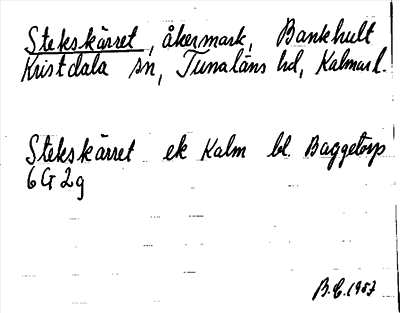 Stekskärret, åkermark, Bankhult
Kristdala sn, Tunaläns hd, Kalmar l.
Stekskärret ek Kalm bl. Baggetorp
6G2g
B.E. 1957